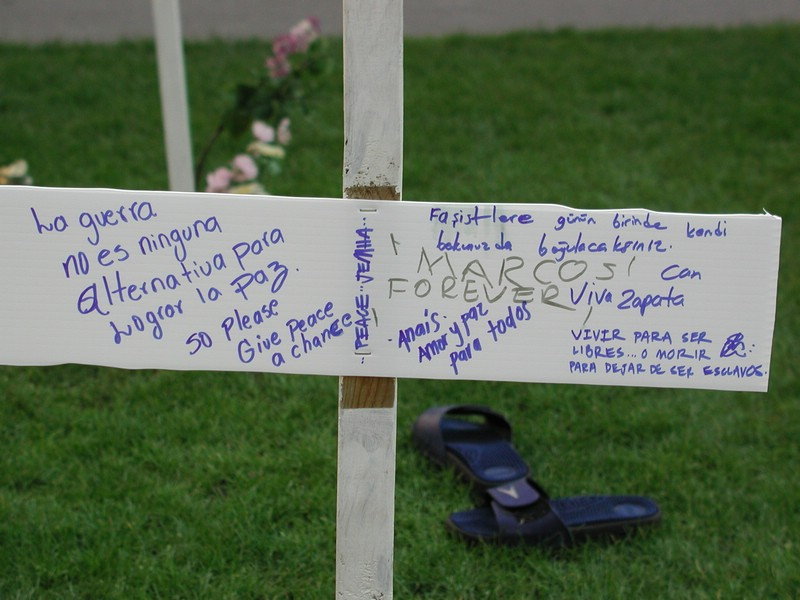 La guerra
no es ninguna
alternativa para
Lograr la Paz.
so Please
Give Peace
a chance
PEACE...
Faşistlere günün birinde kendi
bokunuzda boğulacaksınız.
¡MARCOS
FOREVER!
Can
Viva Zapata
Anaís.
Amor y paz
para todos
VIVIR PARA SER
LIBRES... O MORIR
PARA DEJAR DE SER ESCLAVOS.